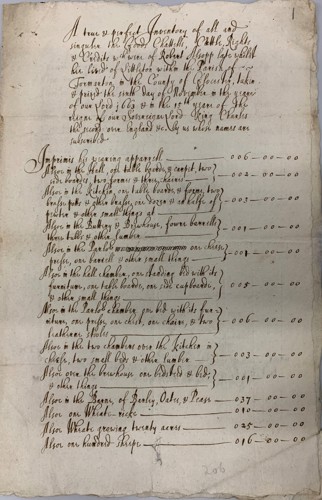 1
A true & perfect Inventory of all and
singular the Goods Chattells, Cattle Rights
& Creditts which were of Robert Alsopp late whilst
hee lived of Littleton within the Parish of
in the County of taken
& prized the sixth day of November in the yeare
of our Lord 1663 & in the 15th yeare of the
reigne of our Soveraigne Lord King Charles
the second over England &c By us whose names are
subscribed
Imprimis his wearing apparrell 006-00-00
Alsoe in the Hall, one table board & carpet, two
side boards, two formes & three chaires 002-00-00
Alsoe in the Kitchin, one table board & forme, two
brasse potts & other brasse, one dozen & an halfe of
pewter & other small things att 003-00-00
Alsoe in the Buttery & Brewhouse, fower barrells
three tubbs & other lumber 001-00-00
Alsoe in the Parlor one cheese
presse, one barrell & other small things 001-00-00
Alsoe in the hall chamber, one standing bed with its
furniture, one table board, one side cupboard,
& other small things 005-00-00
Alsoe in the Parlor chamber, one bed with its fur
niture, one presse, one chest, one chaire, & two
leatherne stooles 006-00-00
Alsoe in the two chambers over the kitchin in
cheese, two small beds & other lumber 003-00-00
Alsoe over the brewhouse one bedsteed & bed,
& other things 001-00-00
Alsoe in the Barne, of Barley, Oates, & Pease 037-00-00
Alsoe one Wheate ricke 010-00-00
Alsoe Wheate growing twenty acres 025-00-00
Alsoe one hundred sheepe 016-00-00
206